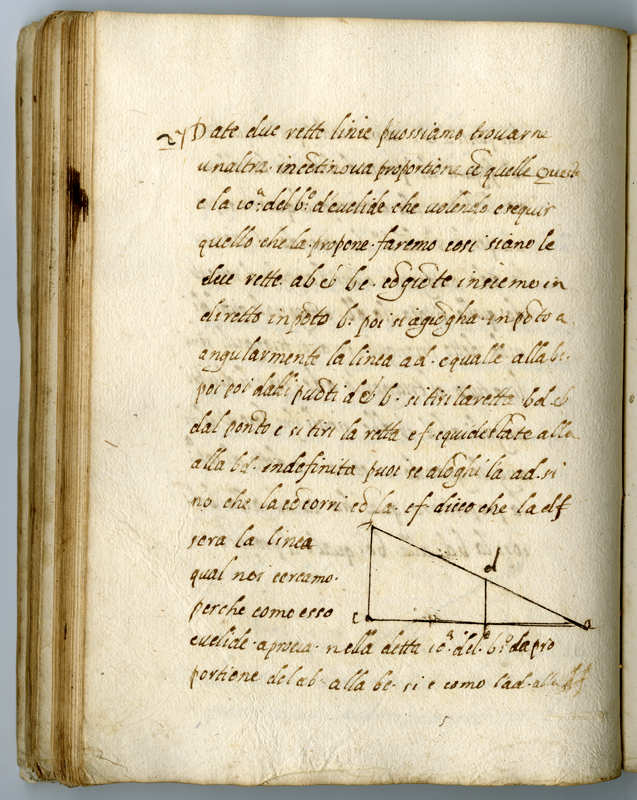 27 Date due rette linie puossiamo trouarne
unaltra in cõtinoua proportione cõ quelle Questa
e la 10.ª del 6.º d euclide che uolendo esequir
quello che la propone faremo cosi siano le
due rette ab et be cõgiõte insiemo in
diretto in põto b. poi si agiõgha in põto a
angularmente la linea ad equalle alla be.
poi poi dalli puõti d et b si tiri la retta bd et
dal ponto e si tiri la retta ef equidestãte alla
alla bd indefinita puoi se alõghi la ad si
no che la cõcorri cõ la ef dicco che la df
sera la linea
qual noi cercamo.
perche como esso
euclide aproua nella detta 10.ª del 6.º da pro
portione del ab alla be si e como l ad alla df
d
e
a